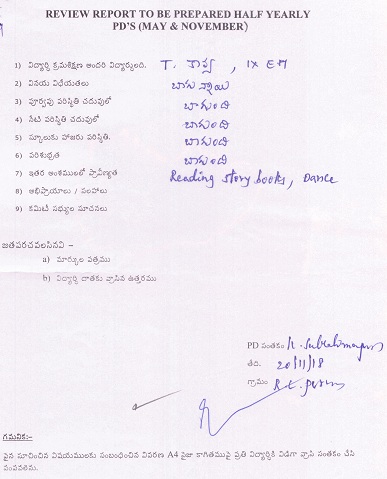 REVIEW REPORT TO BE PREPARED HALF YEARLY
PD'S (MAY & NOVEMBER)
1) విద్యార్థి క్రమశిక్షణ ఇందరి విద్యార్థులది. T. కావ్య, IX EM
2) వినయ విధేయతలు బాగున్నాయి
3) పూర్వపు పరిస్థితి చదువులో బాగుంది
4) నేటి పరిస్థితి చదువులో బాగుంది
5) స్కూలుకు హాజరు పరిస్థితి. బాగుంది
6) పరిశుభ్రత బాగుంది
7) ఇతర అంశములలో ప్రావీణ్యత Reading story books, Dance
8) అభిప్రాయాలు / సలహాలు
9) కమిటీ సభ్యుల సూచనలు
జతపరచవలసినవి –
a) మార్కుల పత్రము
b) విద్యార్థి దాతకు వ్రాసిన ఉత్తరము
PD సంతకం
తేది. 20/11/18
గ్రామం R.C.
గమనిక:–
పైన సూచించిన విషయములకు సంబంధించిన వివరణ A4 సైజు కాగితముపై ప్రతి విద్యార్థికి విడిగా వ్రాసి సంతకం చేసి
పంపవలెను.